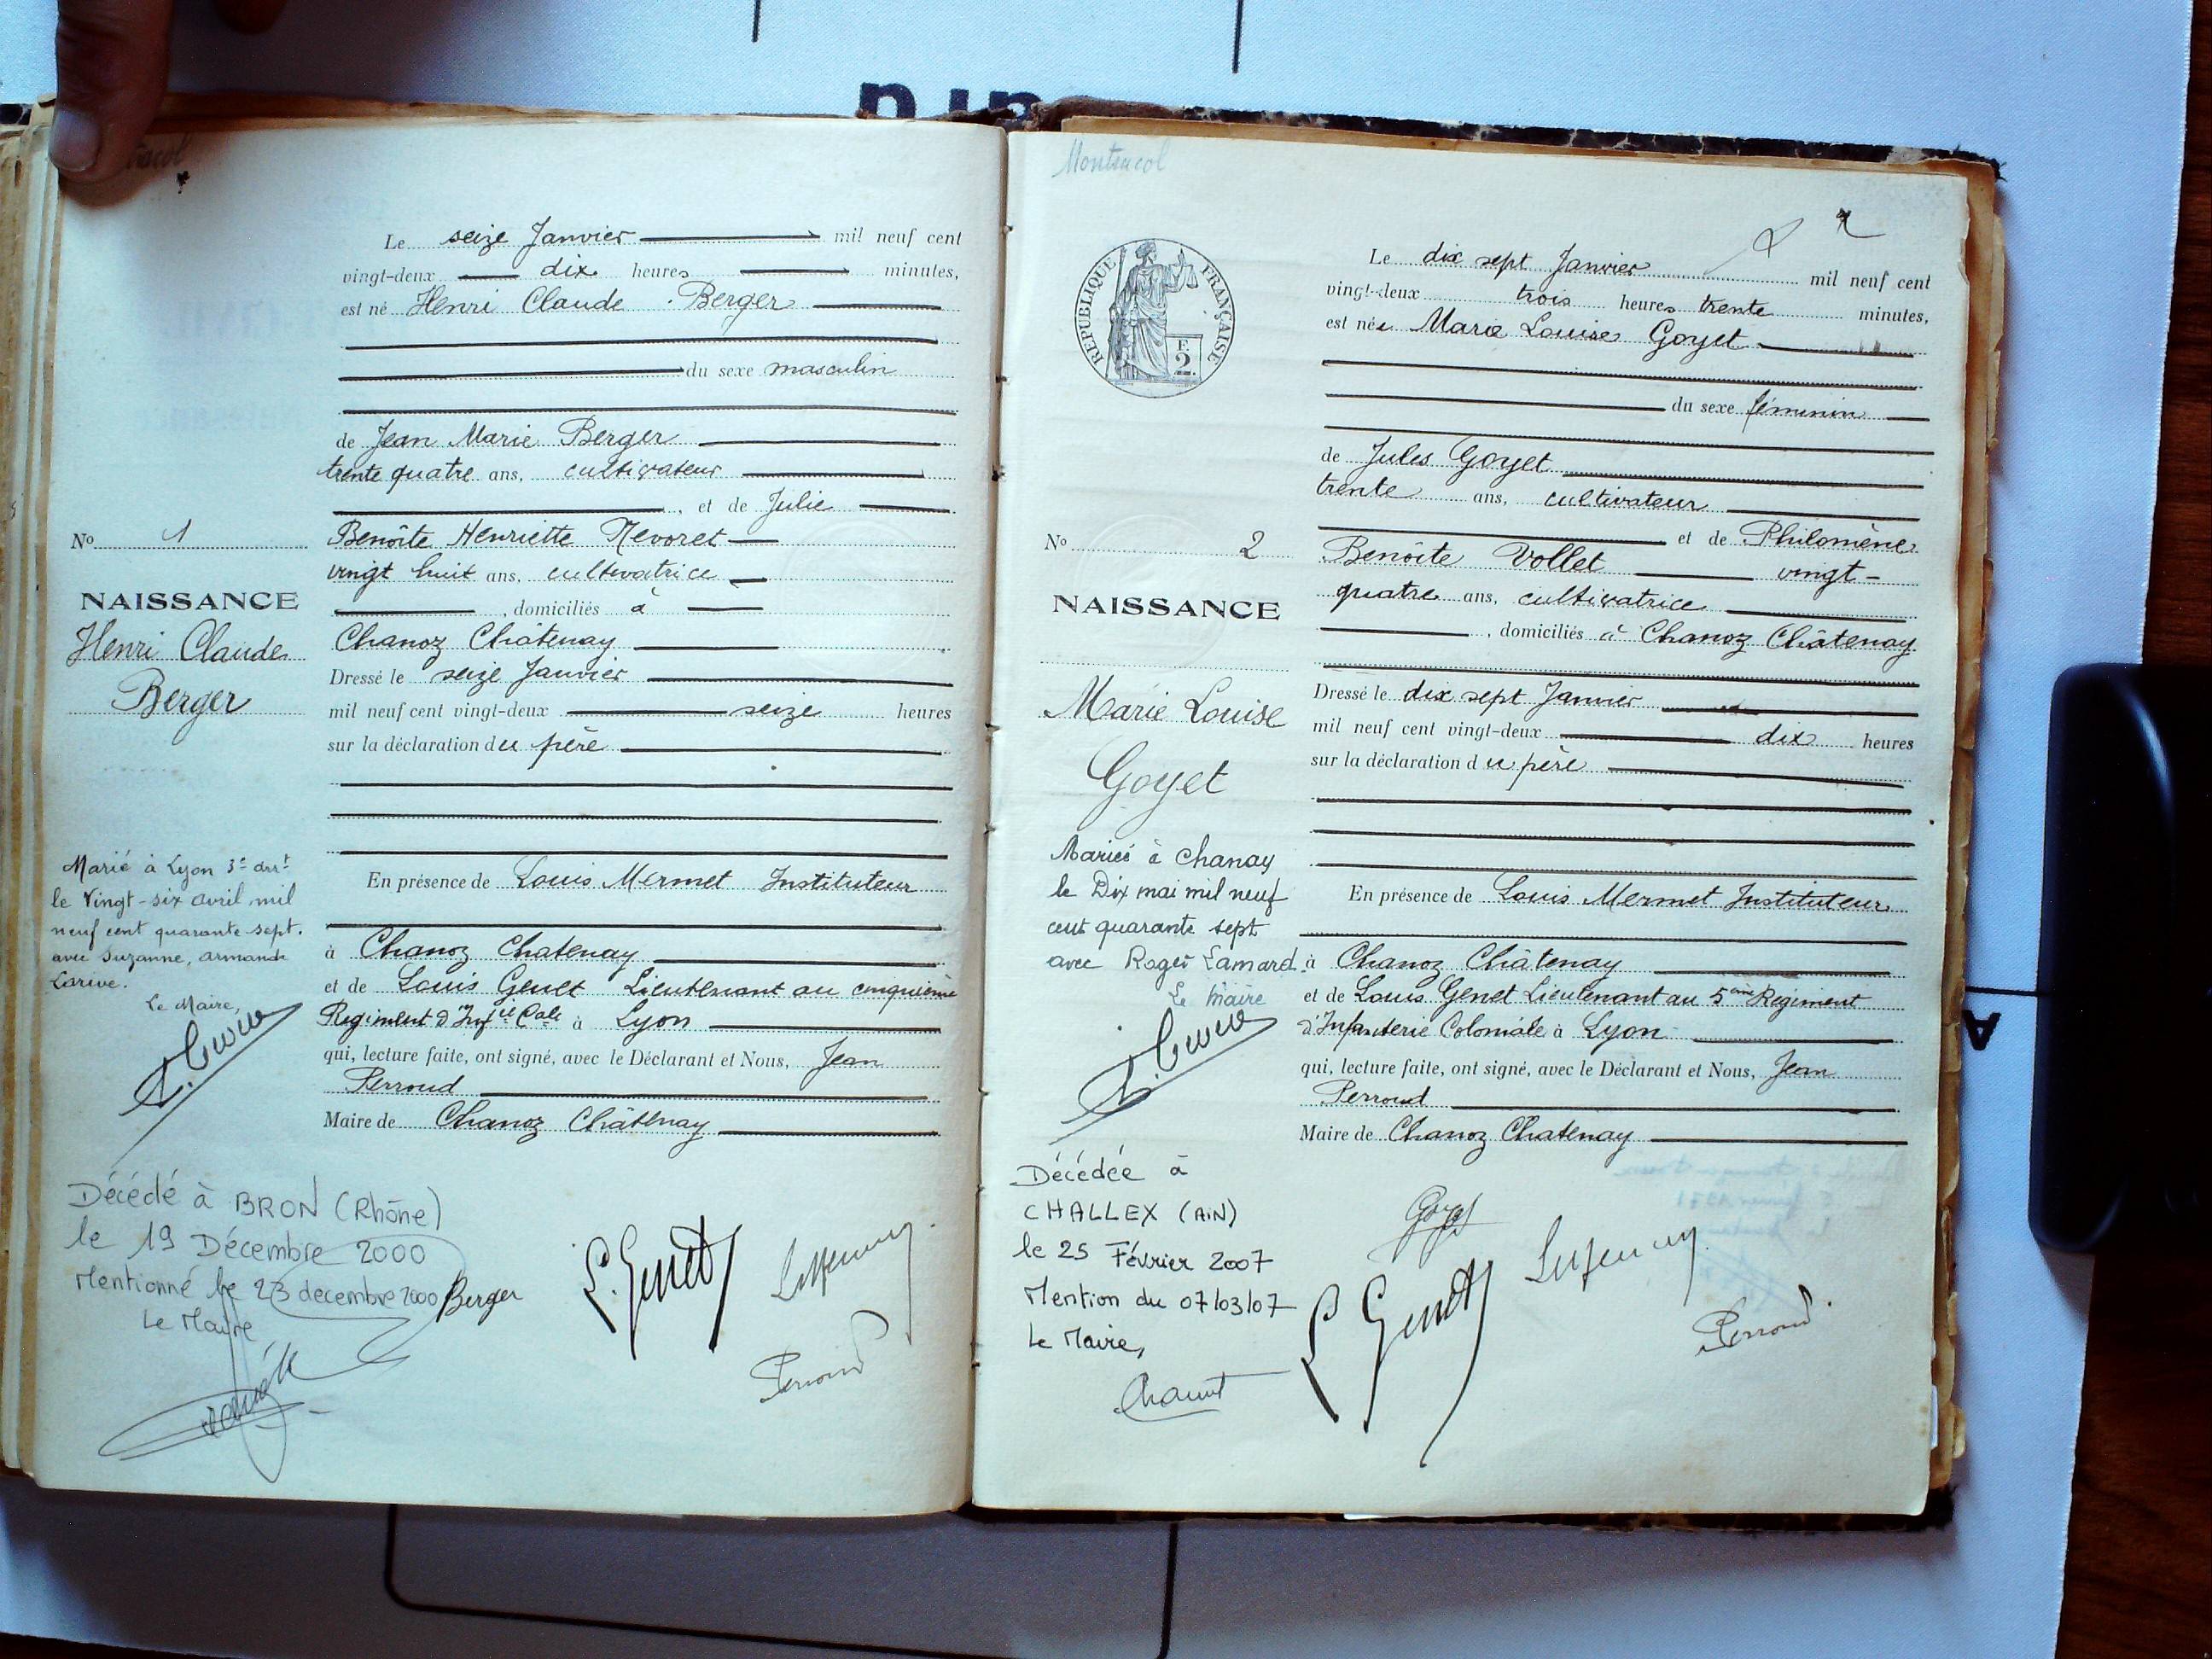 Le seize Janvier mil neuf cent
vingt-deux dix heures minutes,
est né Henri Claude Berger
du sexe masculin
de Jean Marie Berger
trente quatre ans, cultivateur
, et de Julie
Benoîte Henriette Nevoret
vingt huit ans, cultivatrice
, domiciliés à
Chanoz Châtenay
Dressé le seize Janvier
mil neuf cent vingt-deux seize heures
sur la déclaration du père
En présence de Louis Mermet Instituteur
à Chanoz Chatenay
et de Louis Genet Lieutenant au cinquième
Regiment d'Inf ie Cale à Lyon
qui, lecture faite, ont signé, avec le Déclarant et Nous, Jean
Perroud
Maire de Chanoz Châtenay
No 1
NAISSANCE
Henri Claude
Berger
Marié à Lyon 3e arrt
le Vingt-six avril mil
neuf cent quarante sept.
avec Suzanne, Armande
Larive.
Le Maire,
Décédé à BRON (Rhône)
le 19 Décembre 2000
Mentionné le 23 decembre 2000
Le Maire
Berger
L. Genet
Perroud
Montracol
2
RÉPUBLIQUE FRANÇAISE
F.
2.
Le dix sept Janvier mil neuf cent
vingt-deux trois heures trente minutes,
est née Marie Louise Goyet
du sexe féminin
de Jules Goyet
trente ans, cultivateur
et de Philomène
Benoîte Vollet vingt-
quatre ans, cultivatrice
, domiciliés à Chanoz Châtenay
Dressé le dix sept Janvier
mil neuf cent vingt-deux dix heures
sur la déclaration du père
En présence de Louis Mermet Instituteur
à Chanoz Châtenay
et de Louis Genet Lieutenant au 5ème Regiment
d'Infanterie Coloniale à Lyon
qui, lecture faite, ont signé, avec le Déclarant et Nous, Jean
Perroud
Maire de Chanoz Chatenay
No 2
NAISSANCE
Marie Louise
Goyet
Mariée à Chanay
le Dix mai mil neuf
cent quarante sept
avec Roger Lamard
Le Maire
Décédée à
CHALLEX (AIN)
le 25 Février 2007
Mention du 07/03/07
Le Maire,
Goyet
L Genet
Perroud